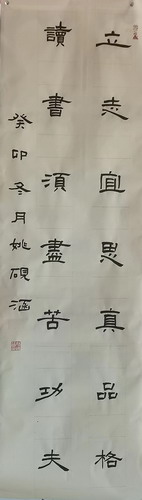 立志宜思真品格
讀書須盡苦功夫
癸卯冬月姚硯涵